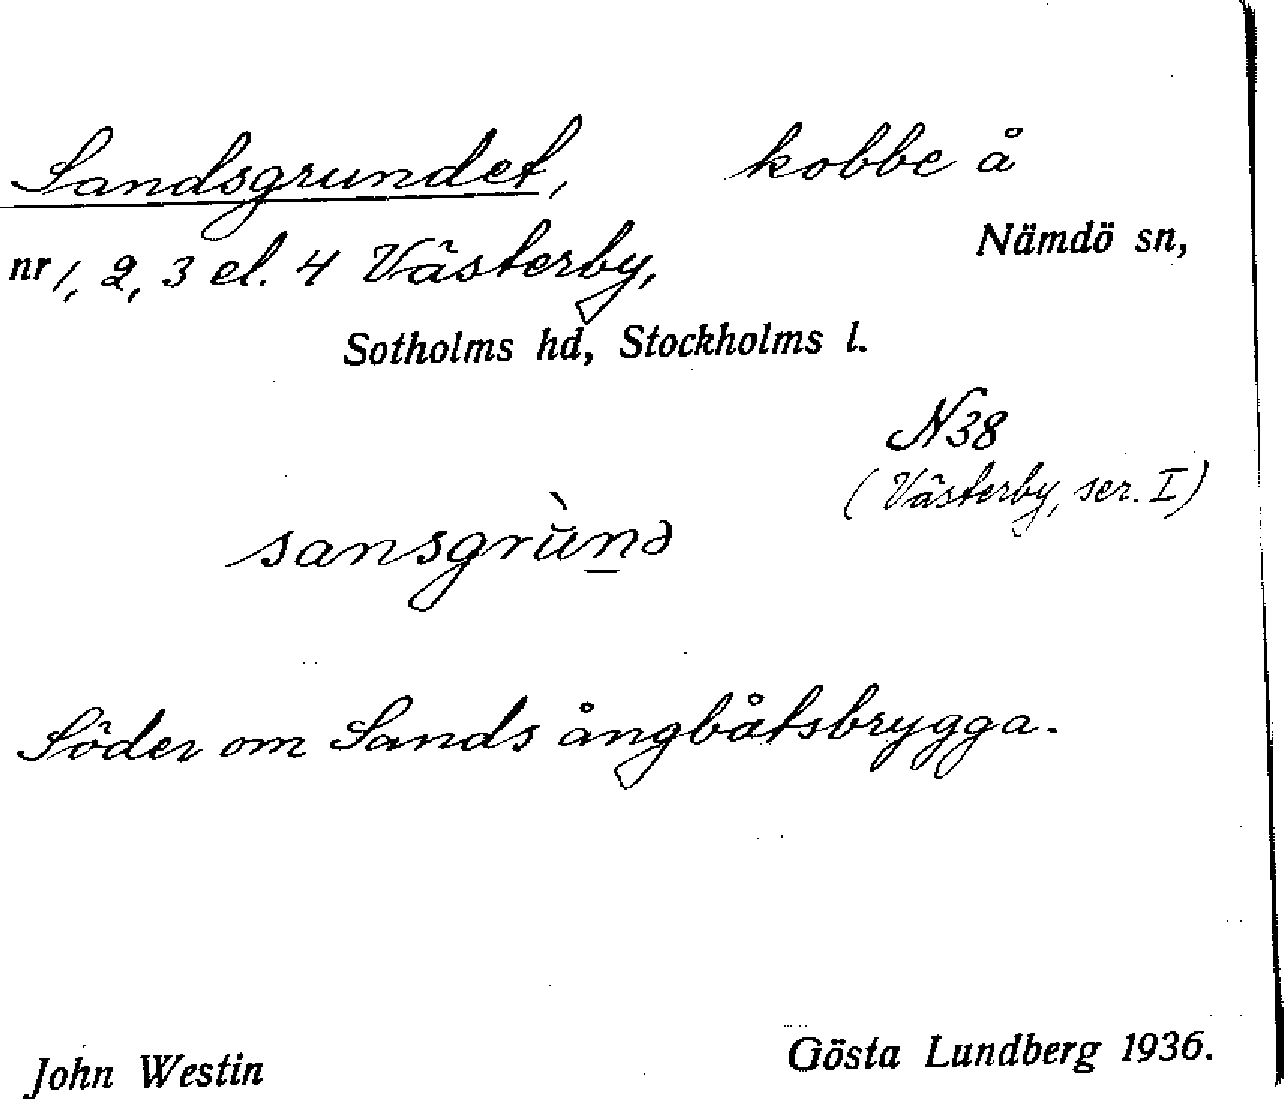 Sandsgrundet, kobbe å
Nämdö sn,
nr 1, 2, 3 el. 4 Västerby,
Sotholms hd, Stockholms l.
N38
(Västerby, ser. I)
sansgrùnə
Söder om Sands ångbåtsbrygga.
John Westin
Gösta Lundberg 1936.